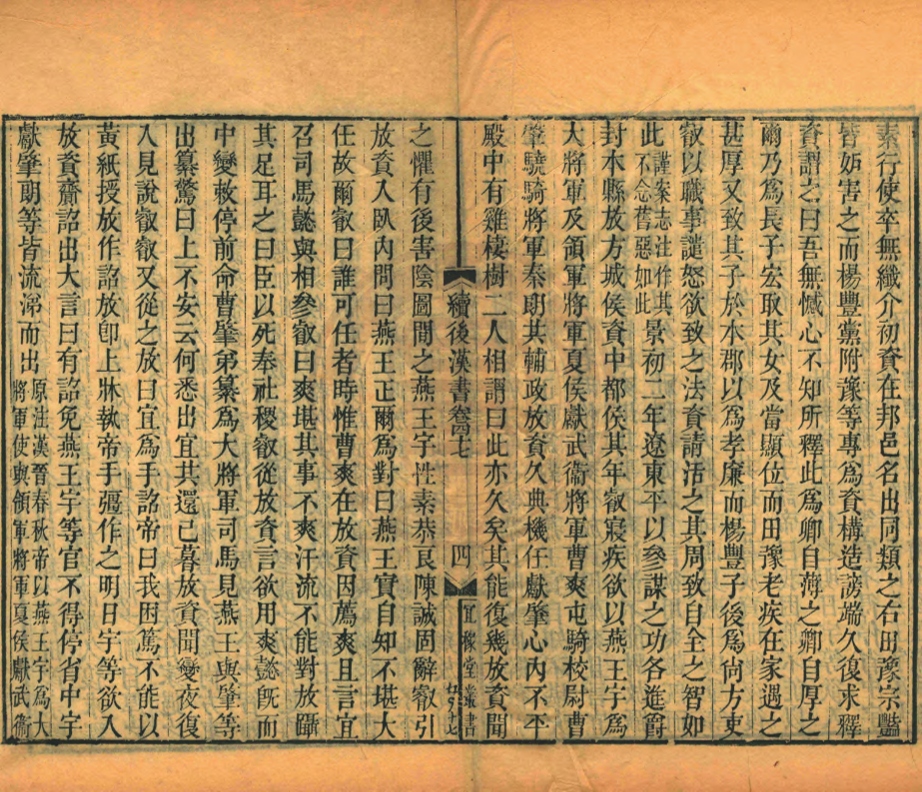 素行使卒無纖介初資在邦邑名出同類之右田豫宗豔
皆妒害之而楊豐黨附豫等專爲資構造謗端久復求釋
資謂之曰吾無憾心不知所釋此爲卿自薄之卿自厚之
爾乃爲長子宏取其女及當顯位而田豫老疾在家遇之
甚厚又致其子於本郡以爲孝廉而楊豐子後爲尙方吏
叡以職事譴怒欲致之法資請活之其周致自全之智如
此謹案志注作其不念舊惡如此景初二年遼東平以參謀之功各進爵
封本縣放方城侯資中都侯其年叡寢疾欲以燕王宇爲
大將軍及領軍將軍夏侯獻武衞將軍曹爽屯騎校尉曹
肇驍騎將軍秦朗共輔政放資久典機任獻肇心內不平
殿中有雞棲樹二人相謂曰此亦久矣其能復幾放資聞
續後漢書卷四十七
四
宜稼堂叢書
之懼有後害陰圖間之燕王宇性素恭良陳誠固辭叡引
放資入臥內問曰燕王正爾爲對曰燕王實自知不堪大
任故爾叡曰誰可任者時惟曹爽在放資因薦爽且言宜
召司馬懿與相參叡曰爽堪其事不爽汗流不能對放躡
其足耳之曰臣以死奉社稷叡從放資言欲用爽懿旣而
中變敕停前命曹肇弟纂爲大將軍司馬見燕王與肇等
出纂驚曰上不安云何悉出宜共還已暮放資聞變夜復
入見說叡叡又從之放曰宜爲手詔帝曰我困篤不能以
黃紙授放作詔放卽上牀執帝手彊作之明日宇等欲入
放資齎詔出大言曰有詔免燕王宇等官不得停省中宇
獻肇朗等皆流涕而出原注漢晉春秋帝以燕王宇爲大將軍使與領軍將軍夏侯獻武衞